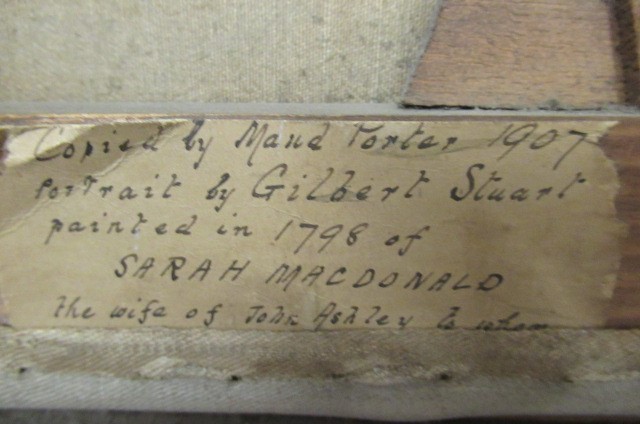 Copied by Maud Porter 1907
Portrait by Gilbert Stuart
painted in 1798 of
SARAH MACDONALD
the wife of John Ashley to whom